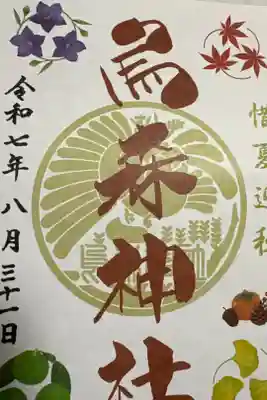 惜夏迎秋
烏森神社
令和七年八月三十一日